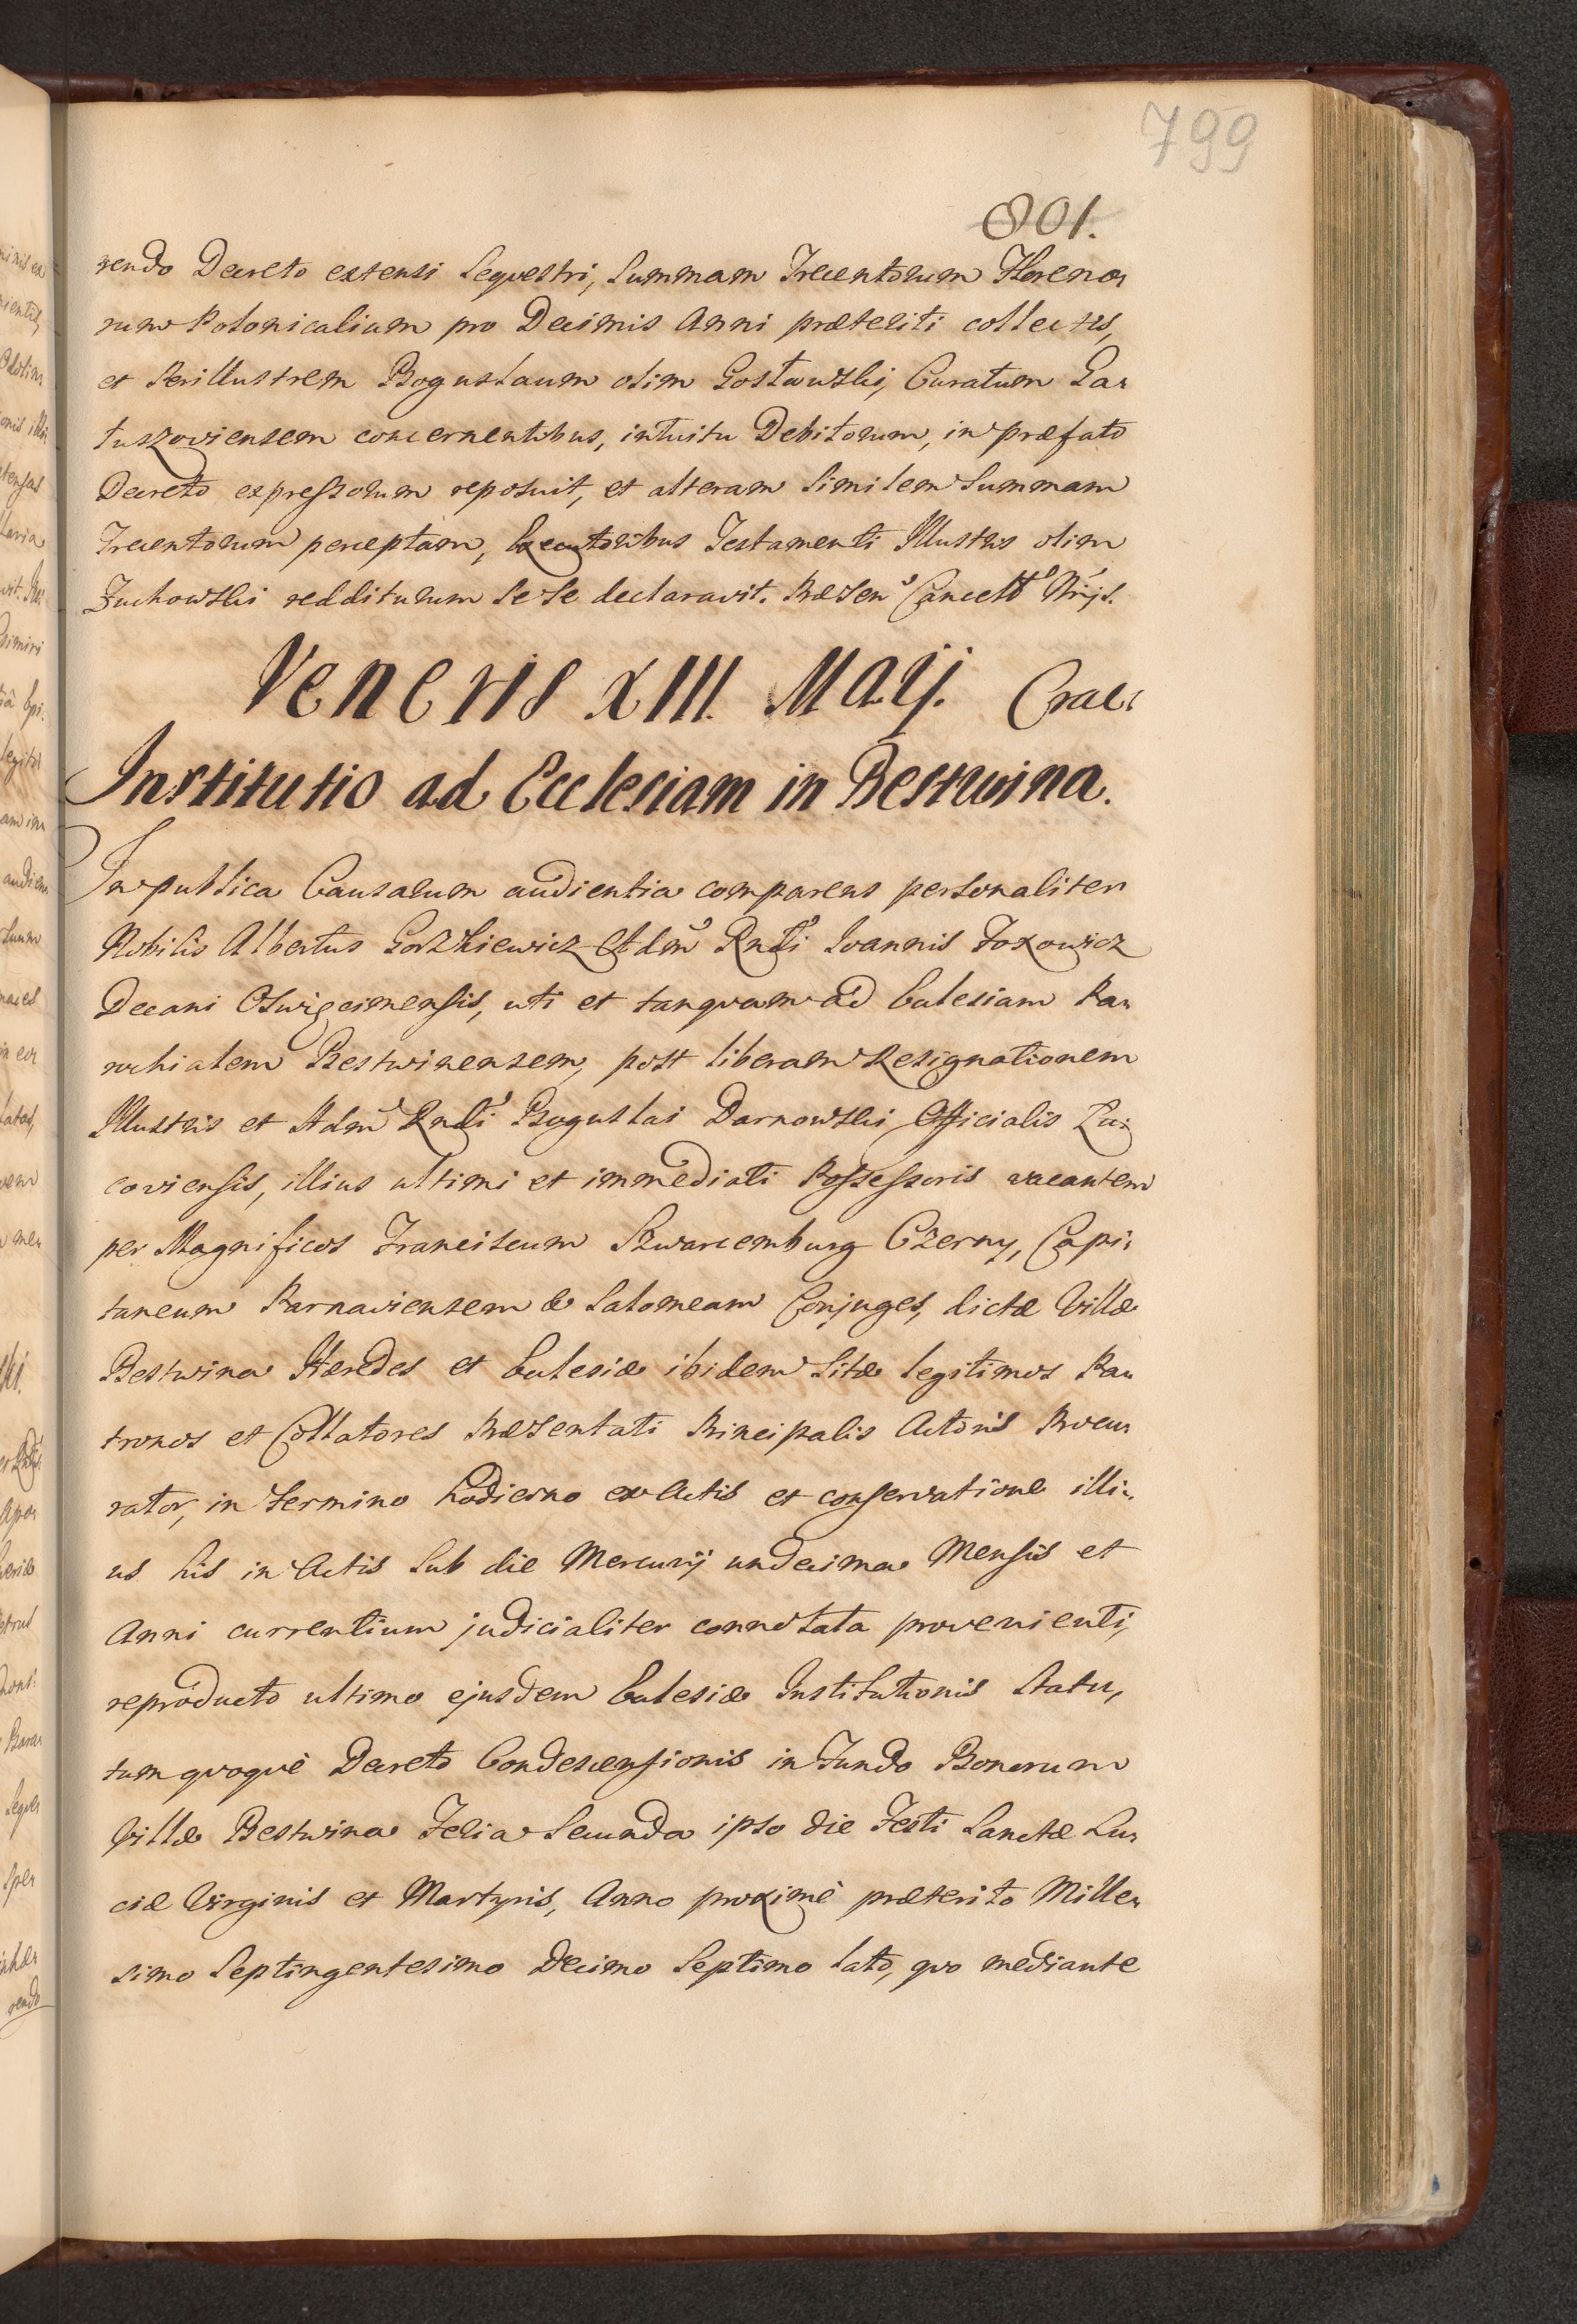 799
801.
rendo Decreto extensi Seqvestri, Summam Trecentorum Floreno-
rum Polonicalium pro Decimis Anni præteriti collectis,
et Perillustrem Boguslaum olim Gosławski, Curatum Ga-
tuszoviensem concernentibus, intuitu Debitorum, in præfato
Decreto expressorum reposuit, et alteram Similem Summam
Trecentorum perceptam, Executoribus Testamenti Illustris olim
Zuchowski redditurum Sese declaravit. Præsen Cancell
Veneris XIII. Maij. Crac:
Institutio ad Ecclesiam in Bestwina.
In publica Causarum audientia comparens personaliter
Nobilis Albertus Gorzkiewicz Adm Rndi Ioannis Foxowicz
Decani Oswięcimensis, uti et tanqvam ad Ecclesiam Pa-
rochialem Bestwinensem, post liberam Resignationem
Illustris et Adm Rndi Boguslai Darnowski Officialis Cra-
coviensis, illius ultimi et immediati Possessoris vacantem
per Magnificos Franciscum Szwarcemburg Czerny, Capi-
taneum Parnaviensem & Salomeam Conjuges, dictæ Villæ
Bestwina Hæredes et Ecclesiæ ibidem Sitæ legitimos Pa-
tronos et Collatores Præsentati Principalis Actoris Procu-
rator, in Termino hodierno ex Actis et conservatione illi-
us his in Actis Sub die Mercurij undecima Mensis et
Anni currentium judicialiter connotata provenienti,
reproducto ultimo ejusdem Ecclesiæ Institutionis Statu,
tum qvoqvè Decreto Condescensionis in Fundo Bonorum
Villæ Bestwina Feria Secunda ipso die Festi Sanctæ Lu-
ciæ Virginis et Martyris, Anno proximè præterito Mille-
simo Septingentesimo Decimo Septimo lato, qvo mediante